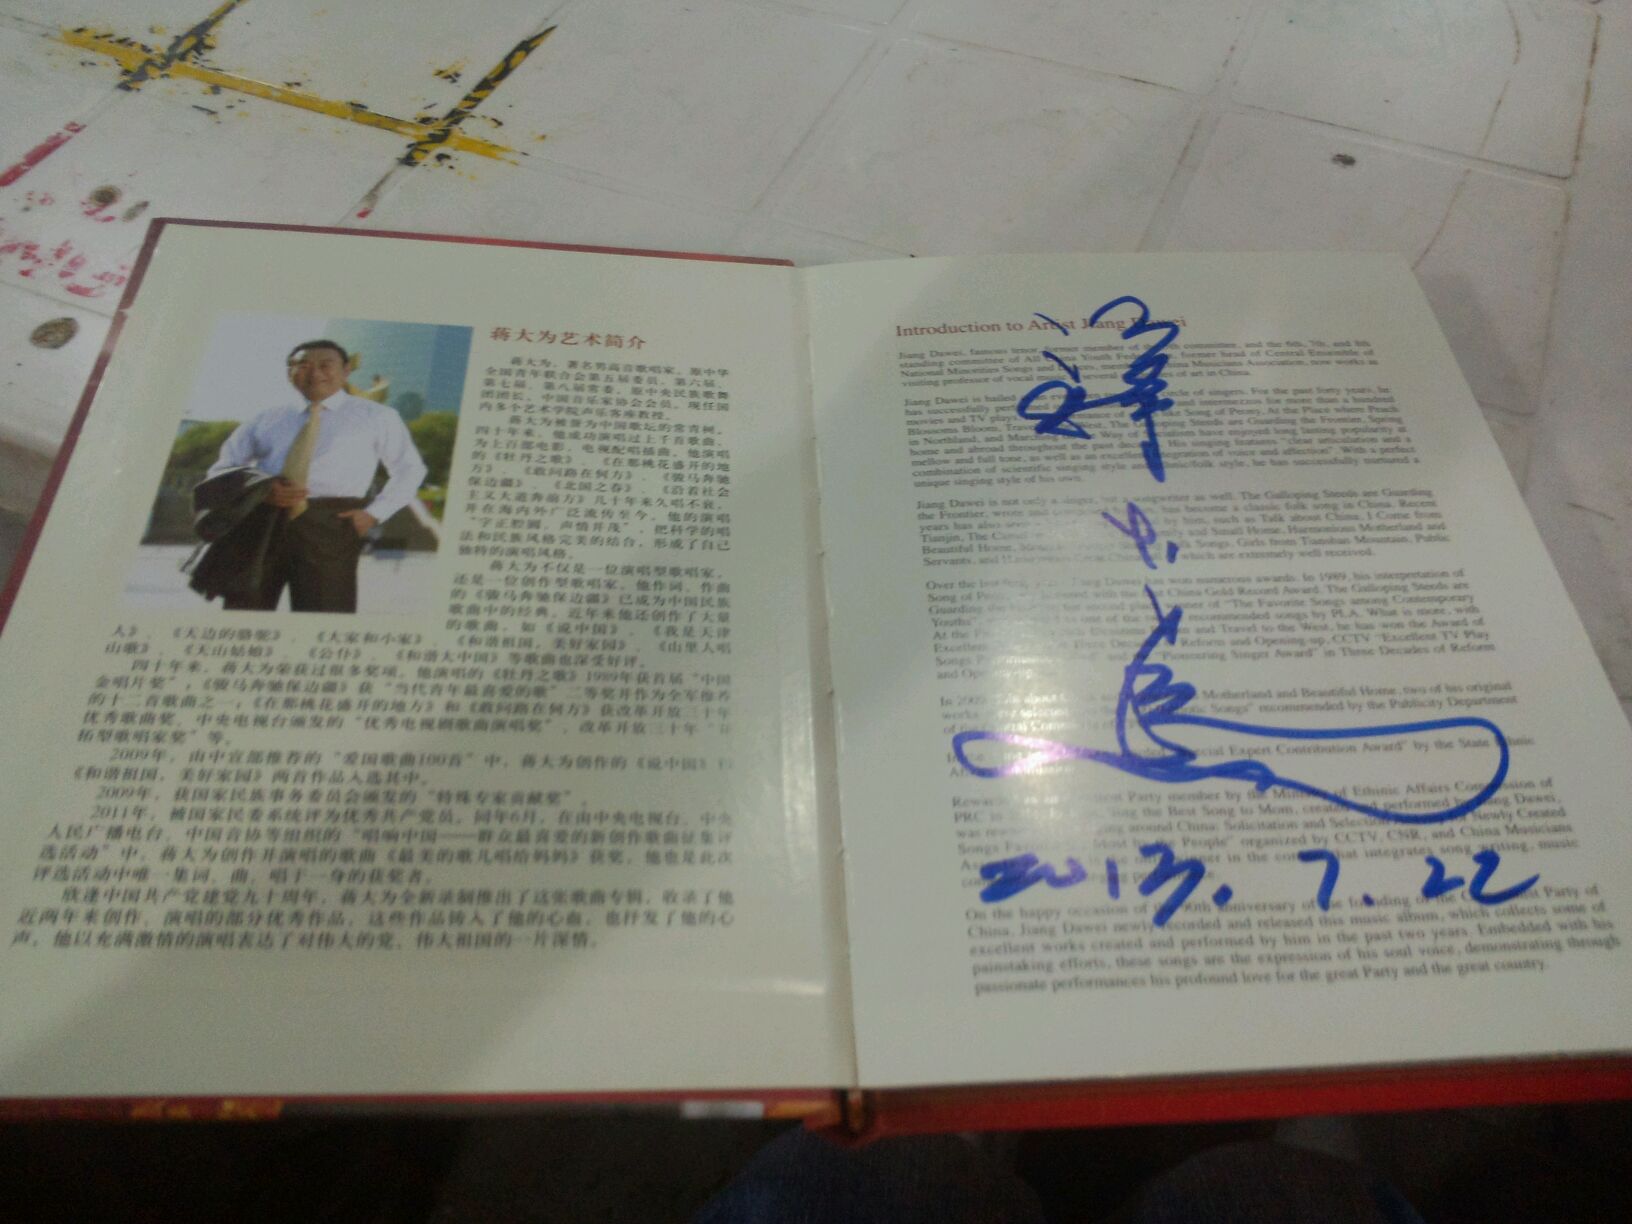 蒋大为艺术简介
蒋大为，著名男高音歌唱家，原中华
全国青年联合会第五届委员，第六届、
第七届、第八届常委，原中央民族歌舞
团团长，中国音乐家协会会员，现任国
内多个艺术学院声乐客座教授。
蒋大为被誉为中国歌坛的常青树。
四十年来，他成功演唱过上千首歌曲，
为上百部电影、电视配唱插曲。他演唱
的《牡丹之歌》、《在那桃花盛开的地
方》、《敢问路在何方》、《骏马奔驰
保边疆》、《北国之春》、《沿着社会
主义大道奔前方》几十年来久唱不衰，
并在海内外广泛流传至今。他的演唱
“字正腔圆，声情并茂”，把科学的唱
法和民族风格完美的结合，形成了自己
独特的演唱风格。
蒋大为不仅是一位演唱型歌唱家，
还是一位创作型歌唱家，他作词、作曲
的《骏马奔驰保边疆》已成为中国民族
歌曲中的经典。近年来他还创作了大量
的歌曲，如《说中国》、《我是天津
人》、《天边的骆驼》、《大家和小家》、《和谐祖国，美好家园》、《山里人唱
山歌》、《天山姑娘》、《公仆》、《和谐大中国》等歌曲也深受好评。
四十年来，蒋大为荣获过很多奖项，他演唱的《牡丹之歌》1989年获首届“中国
金唱片奖”，《骏马奔驰保边疆》获“当代青年最喜爱的歌”二等奖并作为全军推荐
的十二首歌曲之一，《在那桃花盛开的地方》和《敢问路在何方》获改革开放三十年
优秀歌曲奖，中央电视台颁发的“优秀电视剧歌曲演唱奖”，改革开放三十年“开
拓型歌唱家奖”等。
2009年，由中宣部推荐的“爱国歌曲100首”中，蒋大为创作的《说中国》和
《和谐祖国，美好家园》两首作品入选其中。
2009年，获国家民族事务委员会颁发的“特殊专家贡献奖”。
2011年，被国家民委系统评为优秀共产党员，同年6月，在由中央电视台、中央
人民广播电台、中国音协等组织的“唱响中国——群众最喜爱的新创作歌曲征集评
选活动”中，蒋大为创作并演唱的歌曲《最美的歌儿唱给妈妈》获奖，他也是此次
评选活动中唯一集词、曲、唱于一身的获奖者。
欣逢中国共产党建党九十周年，蒋大为全新录制推出了这张歌曲专辑，收录了他
近两年来创作、演唱的部分优秀作品，这些作品铸入了他的心血，也抒发了他的心
声，他以充满激情的演唱表达了对伟大的党、伟大祖国的一片深情。
Introduction to Artist Jiang Dawei
Jiang Dawei, famous tenor, former member of committee, and the 6th, 7th, and 8th
standing committee of All China Youth former head of Central Ensemble of
National Minorities Songs and China Musicians Association, now works as
visiting professor of vocal several of art in China.
Jiang Dawei is hailed circle of singers. For the past forty years, he
has successfully and intermezzos for more than a hundred
movies and TV Song of Peony, At the Place where Peach
Blossoms Bloom, West, The Steeds are Guarding the Frontier, Spring
in Northland, and Way of have enjoyed long lasting popularity at
home and abroad throughout the past His singing features "clear articulation and a
mellow and full tone, as well as an integration of voice and affection". With a perfect
combination of scientific singing style and style, he has successfully nurtured a
unique singing style of his own.
Jiang Dawei is not only a singer, but a songwriter as well. The Galloping Steeds are Guarding
the Frontier, wrote and has become a classic folk song in China. Recent
years has also by him, such as Talk about China, I Come from
Tianjin, The and Small Home, Harmonious Motherland and
Beautiful Home, Songs, Girls from Tianshan Mountain, Public
Servants, and which are extremely well received.
Over the Jiang Dawei has won numerous awards. In 1989, his interpretation of
Song of with the China Gold Record Award. The Galloping Steeds are
Guarding the second of "The Favorite Songs among Contemporary
Youths" as one of the recommended songs by PLA. What is more, with
At the and Travel to the West, he has won the Award of
Excellent Reform and Opening-up, CCTV "Excellent TV Play
Songs and "Pioneering Singer Award" in Three Decades of Reform
and
In Motherland and Beautiful Home, two of his original
works Songs" recommended by the Publicity Department
of
Special Expert Contribution Award" by the State Ethnic
Party member by the of Ethinic Affairs Commission of
PRC in the Best Song to Mom, created and performed by Jiang Dawei,
was around China: Solicitation and Selection for Newly Created
Songs Most People" organized by CCTV, CNR, and China Musicians
in the that integrates song writing, music
On the happy occasion of the 90th anniversary of the founding of the Party of
China, Jiang Dawei newly recorded and released this music album, which collects some of
excellent works created and performed by him in the past two years. Embedded with his
painstaking efforts, these songs are the expression of his soul voice, demonstrating through
passionate performances his profound love for the great Party and the great country.
2013.7.22